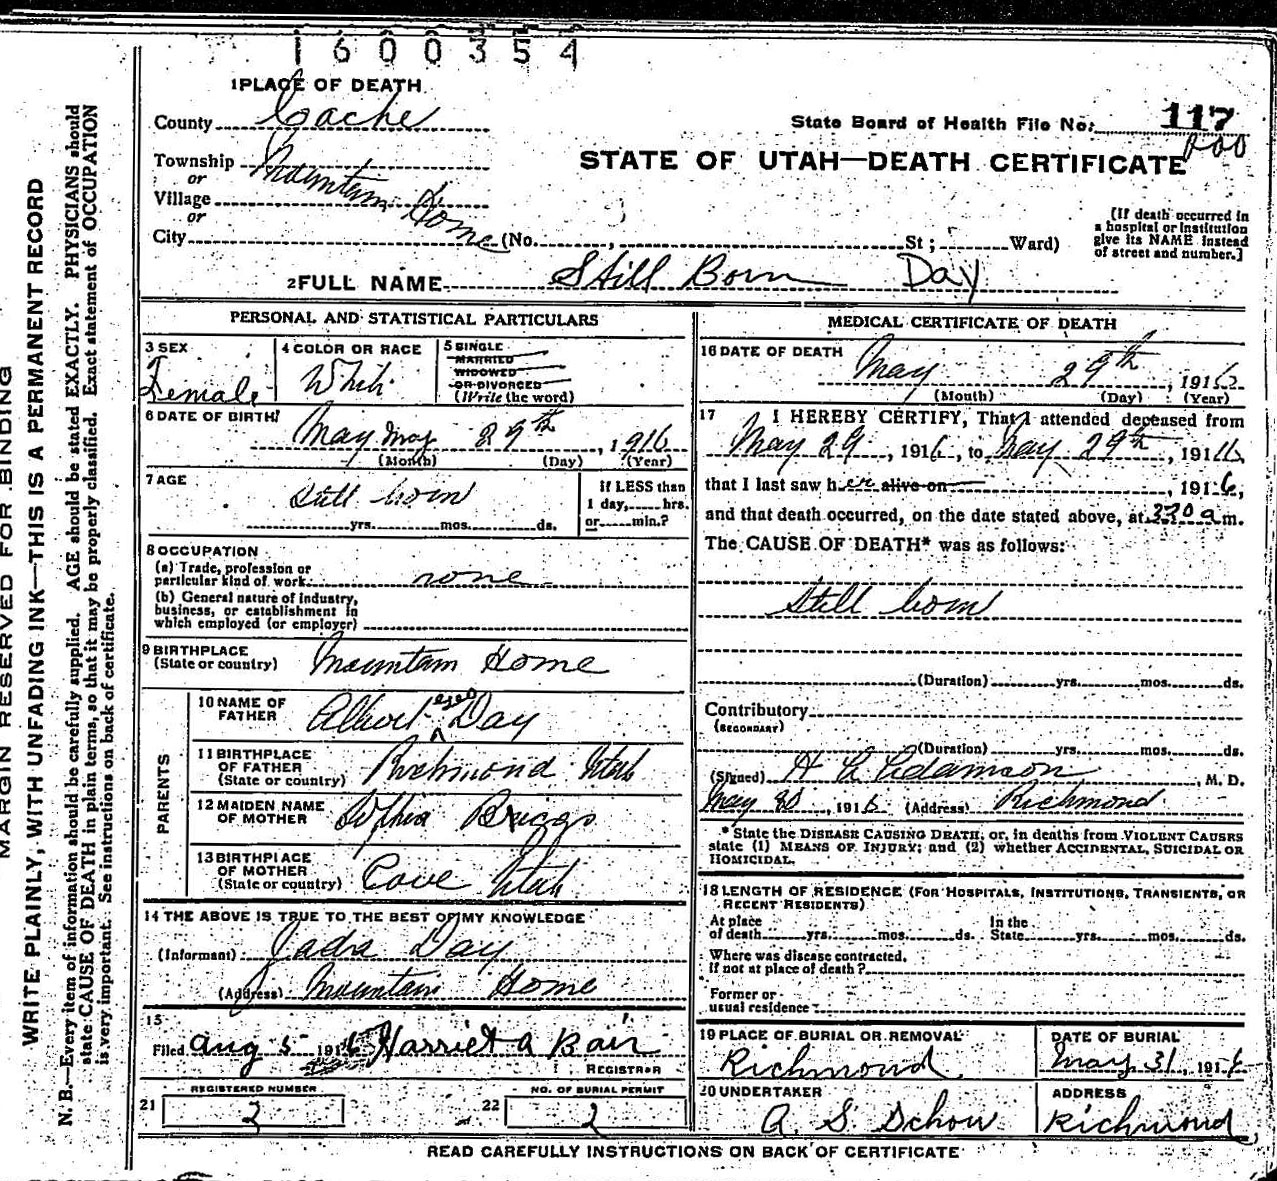 1600354
1 PLACE OF DEATH
County Cache
State Board of Health File No. 117
Township Mountain Home
or
Village
or
City (No. , St ; Ward)
STATE OF UTAH—DEATH CERTIFICATE
[If death occurred in
a hospital or institution
give its NAME instead
of street and number.]
2 FULL NAME Still Born Day
PERSONAL AND STATISTICAL PARTICULARS
3 SEX
Female
4 COLOR OR RACE
White
5 SINGLE
MARRIED
WIDOWED
OR DIVORCED
(Write the word)
6 DATE OF BIRTH
May May 29th, 1916
(Month) (Day) (Year)
7 AGE
Still born
yrs. mos. ds.
if LESS than
1 day, hrs.
or min.?
8 OCCUPATION
(a) Trade, profession or
particular kind of work none
(b) General nature of industry,
business, or establishment in
which employed (or employer)
9 BIRTHPLACE
(State or country) Mountain Home
PARENTS
10 NAME OF
FATHER Albert Day
11 BIRTHPLACE
OF FATHER
(State or country) Richmond Utah
12 MAIDEN NAME
OF MOTHER Sophia Briggs
13 BIRTHPLACE
OF MOTHER
(State or country) Cove Utah
14 THE ABOVE IS TRUE TO THE BEST OF MY KNOWLEDGE
(Informant) Day
(Address) Mountain Home
15
Filed Aug 5 1916 Harriet A Bair
REGISTRAR
REGISTERED NUMBER
21 2
NO. OF BURIAL PERMIT
22 2
MEDICAL CERTIFICATE OF DEATH
16 DATE OF DEATH
May 29th, 1916
(Month) (Day) (Year)
17 I HEREBY CERTIFY, That I attended deceased from
May 29, 1916, to May 29th, 1916,
that I last saw her alive on , 1916,
and that death occurred, on the date stated above, at 3:30 a m.
The CAUSE OF DEATH* was as follows:
Still born
(Duration) yrs. mos. ds.
Contributory
(SECONDARY)
(Duration) yrs. mos. ds.
(Signed) Adamson, M. D.
May 30, 1916 (Address) Richmond
* State the DISEASE CAUSING DEATH, or, in deaths from VIOLENT CAUSES
state (1) MEANS OF INJURY; and (2) whether ACCIDENTAL, SUICIDAL OR
HOMICIDAL.
18 LENGTH OF RESIDENCE (FOR HOSPITALS, INSTITUTIONS, TRANSIENTS, OR
RECENT RESIDENTS)
At place
of death yrs. mos. ds.
In the
State yrs. mos. ds.
Where was disease contracted.
If not at place of death?
Former or
usual residence
19 PLACE OF BURIAL OR REMOVAL
Richmond
DATE OF BURIAL
May 31, 1916
20 UNDERTAKER
A. S. Schow
ADDRESS
Richmond
READ CAREFULLY INSTRUCTIONS ON BACK OF CERTIFICATE
MARGIN RESERVED FOR BINDING
WRITE PLAINLY, WITH UNFADING INK—THIS IS A PERMANENT RECORD
N. B.—Every item of information should be carefully supplied. AGE should be stated EXACTLY. PHYSICIANS should
state CAUSE OF DEATH in plain terms, so that it may be properly classified. Exact statement of OCCUPATION
is very important. See instructions on back of certificate.